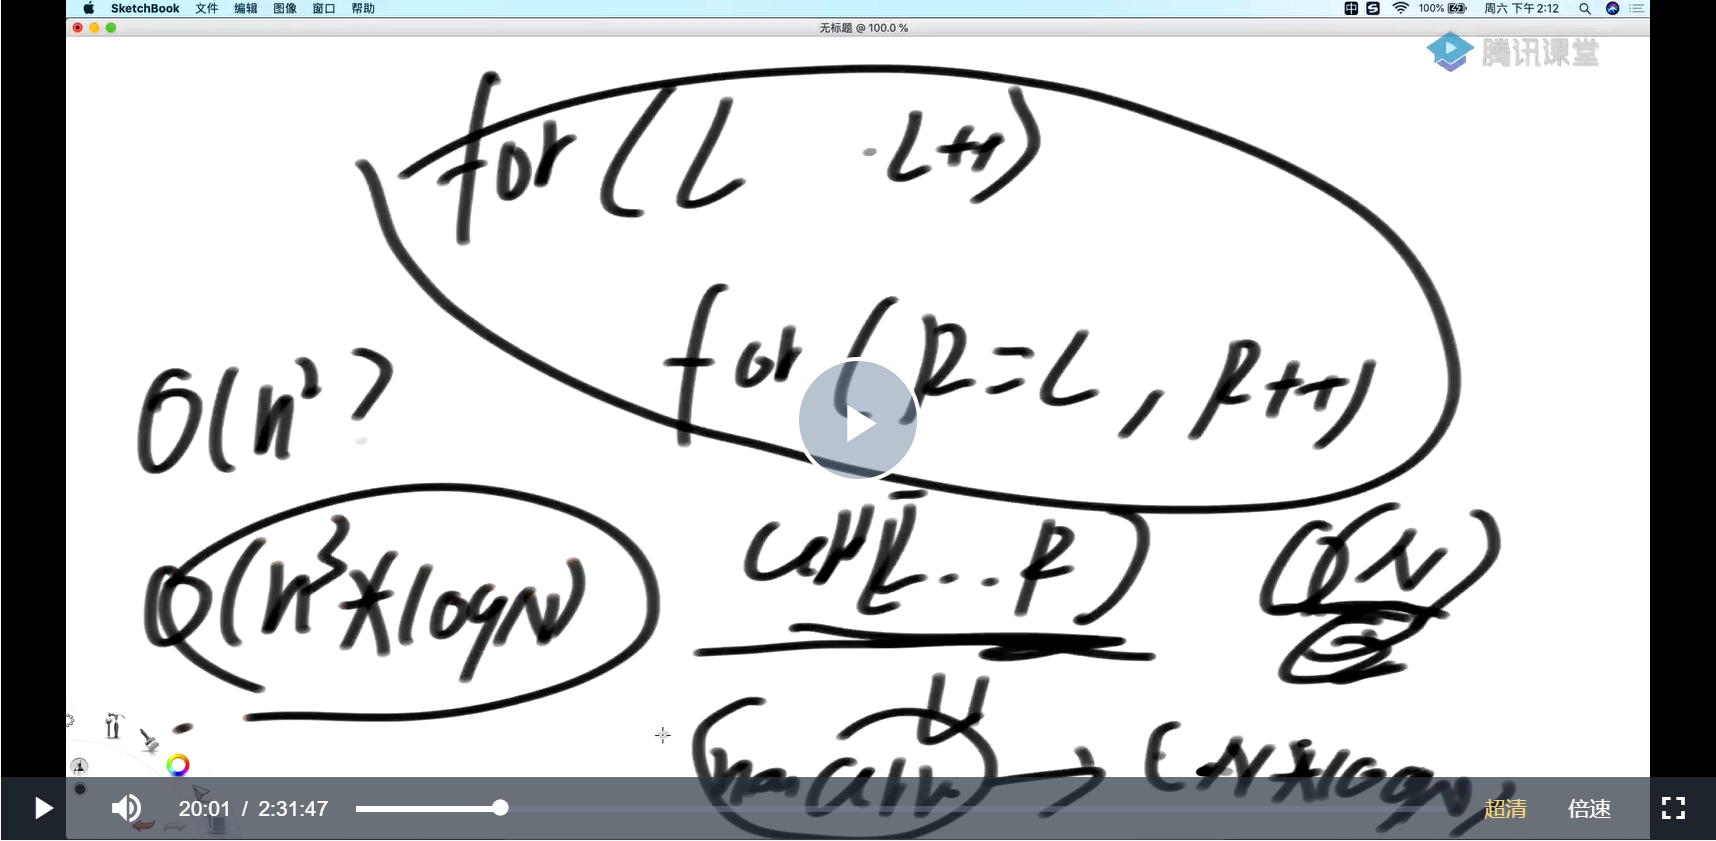 SketchBook 文件 编辑 图像 窗口 帮助 100% 周六 下午2:12
无标题 @ 100.0 %
腾讯课堂
for ( L L++)
for ( R=L , R++)
O(n²)
arr[L...R] O(N)
O(n³*logN)
arr → (N*logN)
20:01 / 2:31:47 超清 倍速